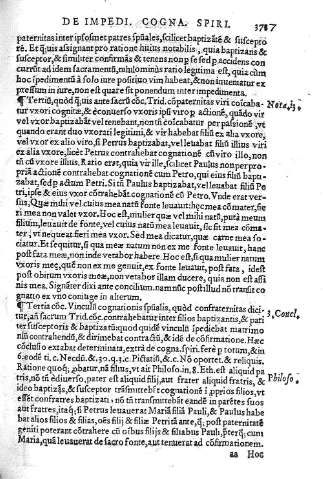 DE IMPEDI. COGNA. SPIRI. 3787
paternitas inter ipsosmet patres spũales, scilicet baptizãtẽ & suscepto
rẽ. Et q̃uis assignant pro ratione huius notabilis, quia baptizans &
susceptor, & similiter confirmãs & tenens non se sed p accidens con
currũt ad idem sacramentũ, nihilominus ratio legitima est, quia cum
hoc spedimentũ à solo iure positiuo vim habeat, & non inuenitur ex
pressum in iure, non est quare sit ponendum inter impedimenta.
¶ Tertiũ, quòd q̃uis ante sacrũ cõc. Trid. cõpaternitas viri coĩcaba-
tur vxori cognitæ, & è conuerso vxoris ipsi viro p actionẽ, quãdo vir
vel vxor baptizabãt vel tenebant, non tñ coĩcabatur per passionẽ, vt
quando erant duo vxorati legitimi, & vir habebat filiũ ex alia vxore,
vel vxor ex alio viro, si Petrus baptizabat, vel leuabat filiũ illius viri
ex alia vxore, licèt Petrus contrahebat cognationẽ cũ viro illo, non
tñ cũ vxore illius. Ratio erat, quia vir ille, scilicet Paulus non per pro-
priã actionẽ contrahebat cognationẽ cum Petro, qui eius filiũ bapti-
zabat, sed p actum Petri. Si tñ Paulus baptizabat, vel leuabat filiũ Pe
tri, ipse & eius vxor cõtrahebãt cognationẽ cũ Petro. Vnde erat ver-
sus, Quæ mihi vel cuius mea natũ fonte leuauit: hęc mea cõmater, fie
ri mea non valet vxor. Hoc est, mulier quæ vel mihi natũ, puta meum
filium, leuauit de fonte, vel cuius natũ mea leuauit, sic sit mea cõma-
ter, vt nequeat fieri mea vxor. Sed mea dicatur, quæ carne mea so-
ciatur. Et sequitur, si qua meæ natum non ex me fonte leuauit, hanc
post fata meæ, non inde verabor habere. Hoc est, si qua mulier natum
vxoris meę, quẽ non ex me genuit, ex fonte leuauit, post fata, idest
post obitum vxoris meæ, non vetabor illam ducere, quia non est affi
nis mea. Signãter dixi ante concilium. nam nũc post illud nõ transit co
gnatio ex vno coniuge in alterum.
¶ Tertia cõc. Vinculũ cognationis spũalis, quòd confraternitas dici-
tur, añ sacrum Trid. cõc. contrahebatur inter filios baptizantis, & patri
ter susceptoris & baptizatũ quod quidẽ vinculũ spediebat matrimo
niũ contrahendũ, & dirimebat contractũ, & idẽ de cõfirmatione. Hæc
cõclusio extabat determinata, extrã de cogna. spiri. ferè p totum, & in
6. eodẽ ti. c. Nedũ. &. 30. q. 1. c. Pictatiũ, &. c. Nõ oportet. & reliquis.
Ratione quoq; pbatur, nã filius, vt ait Philoso. in. 8. Eth. est aliquid pa
tris, nõ tñ è diuerso, pater est aliquid filij, aut frater aliquid fratris, &
ideo baptizãs, & susceptor trãsmittebãt cognationẽ i pprios filios, vt
essent confratres baptizati. nõ tñ transmittebãt eandẽ in parẽtes suos
aut fratres, itaq; si Petrus leuauerat Mariã filiã Pauli, & Paulus habe
bat alios filios & filias, oẽs filij & filiæ Petri tã ante, q̃; post paternitatẽ
geniti poterant cõtrahere cũ oĩbus filijs & filiabus Pauli, pręterq; cum
Maria, quã leuauerat de sacro fonte, aut tenuerat ad cõfirmationem.
aa Hoc
Nota, iũ.
3. Concl.
Philoso.